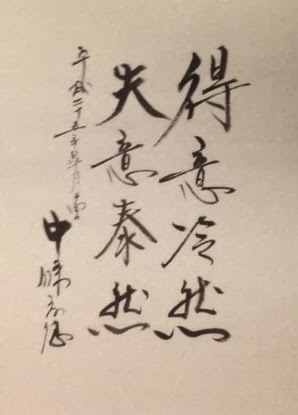 得意冷然
失意泰然
平成二十五年皐月
中